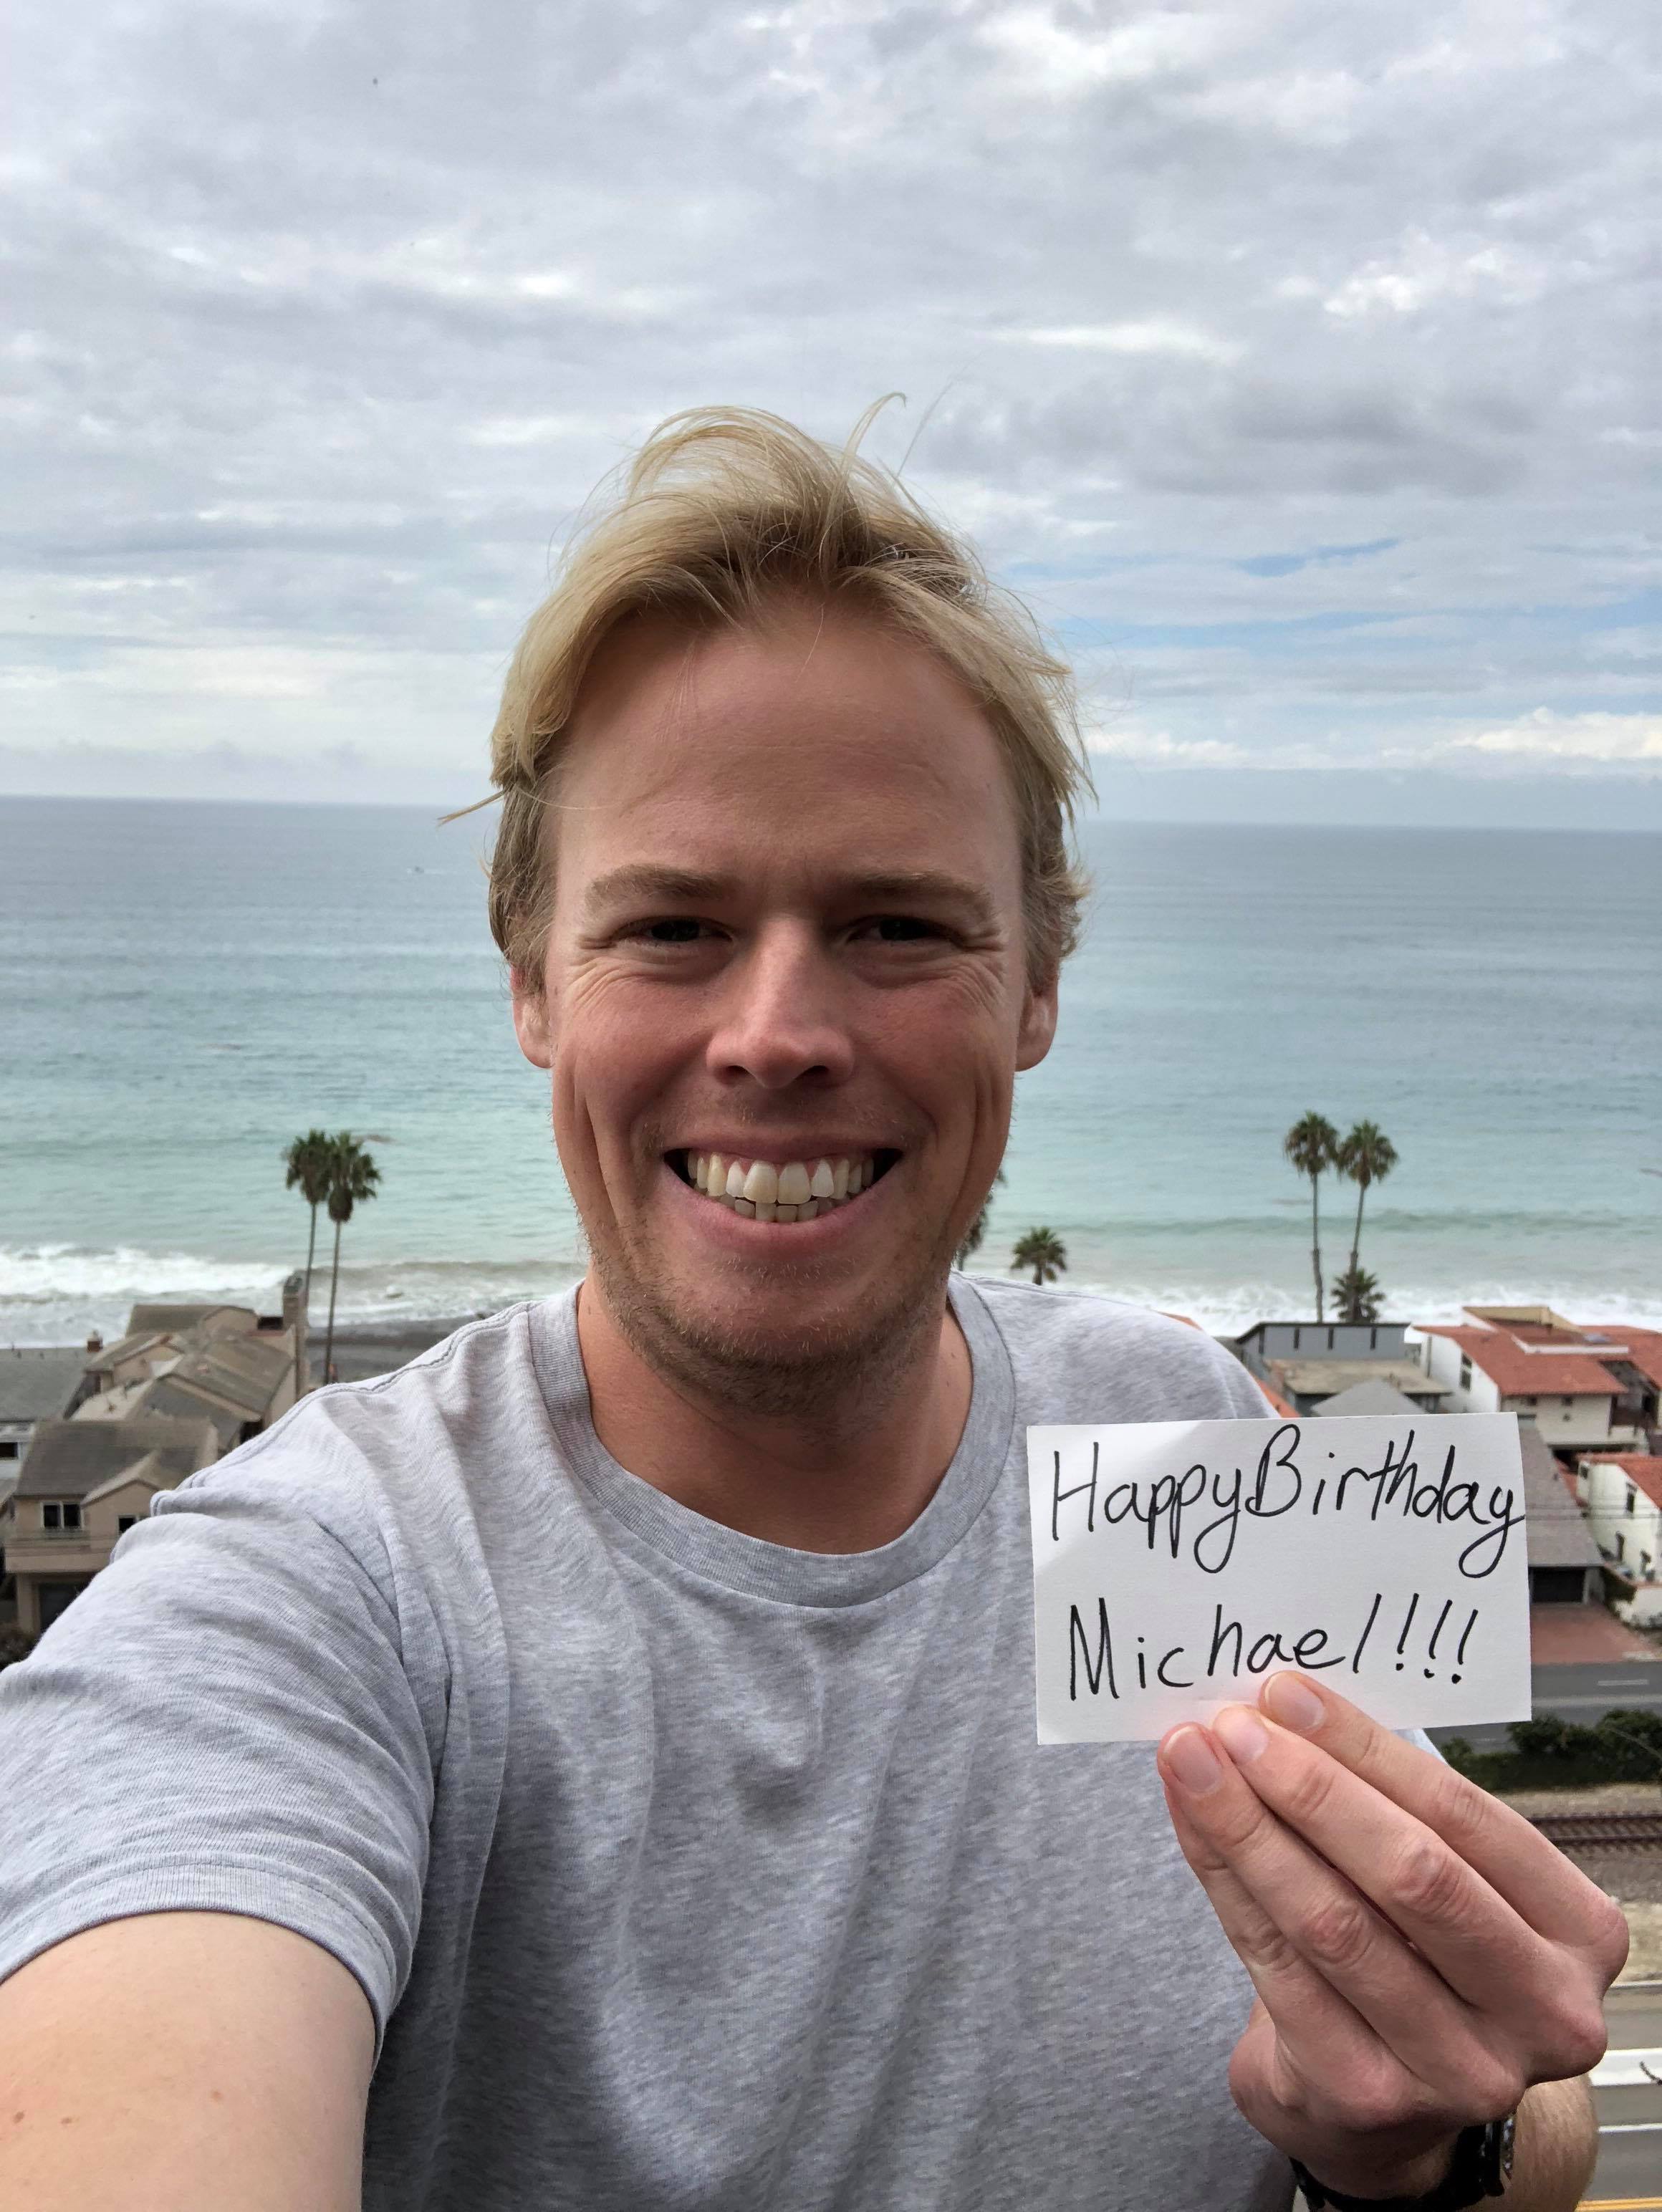 Happy Birthday
Michael!!!!